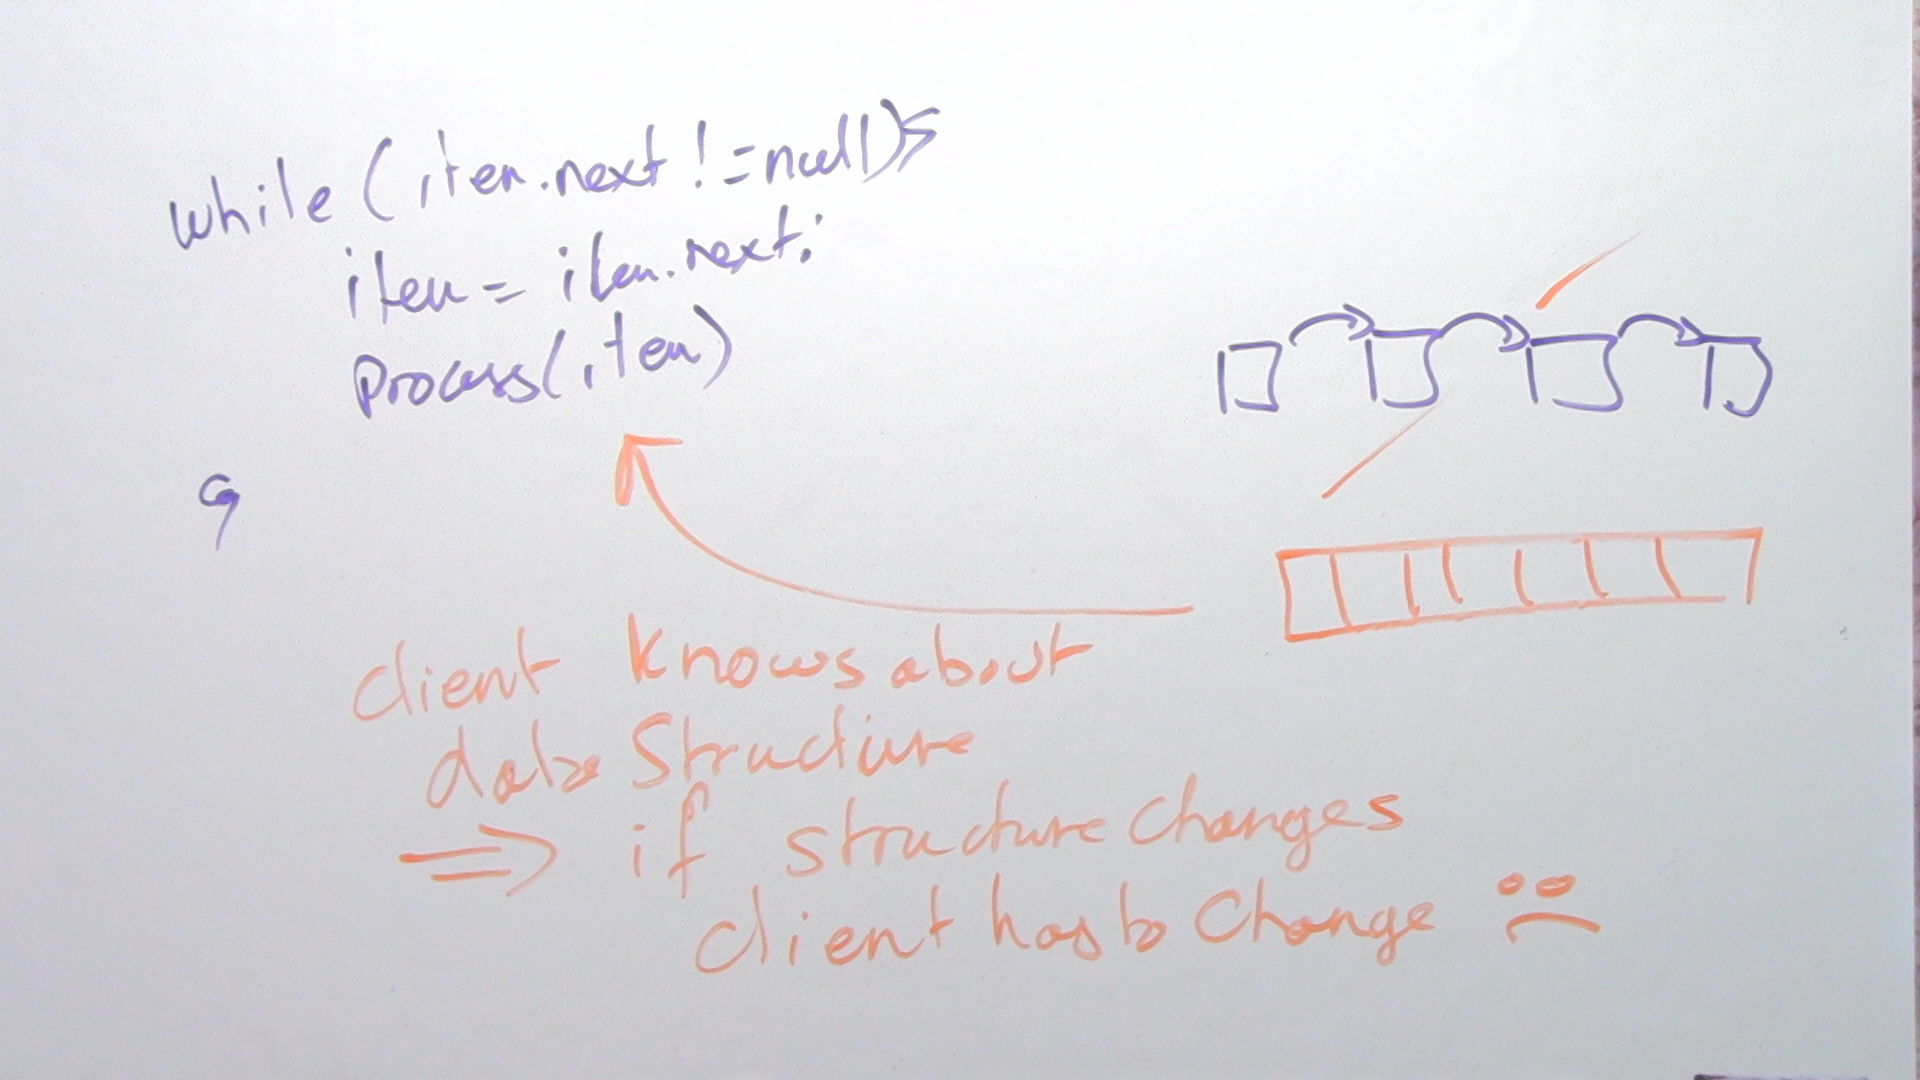 while (item.next != null){
item = item.next;
process(item)
}
client knows about
data structure
⇒ if structure changes
client has to change